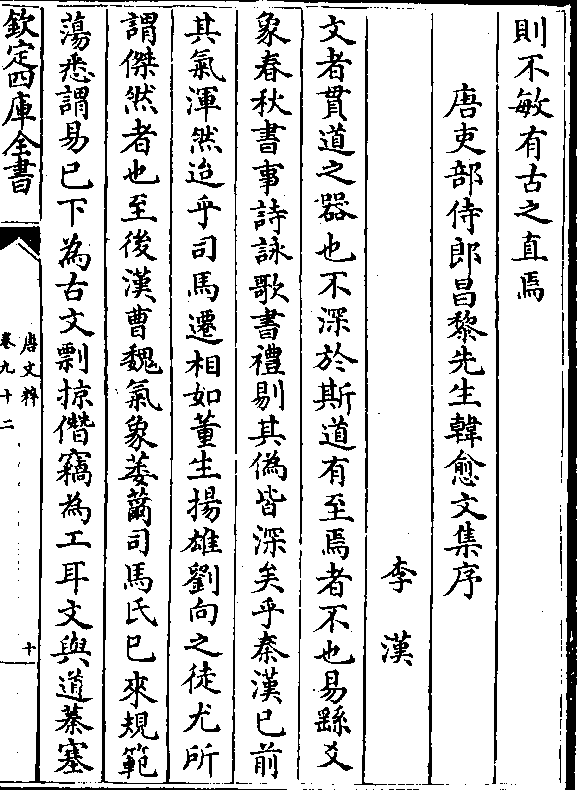 則不敏有古之直焉
唐吏部侍郎昌黎先生韓愈文集序
李漢
文者貫道之器也不深於斯道有至焉者不也易繇爻
象春秋書事詩詠歌書禮剔其偽皆深矣乎秦漢已前
其氣渾然迨乎司馬遷相如董生揚雄劉向之徒尤所
謂傑然者也至後漢曹魏氣象萎薾司馬氏已來規範
蕩悉謂易已下為古文剽掠僭竊為工耳文與道蓁塞
欽定四庫全書
唐文粹
卷九十二
十